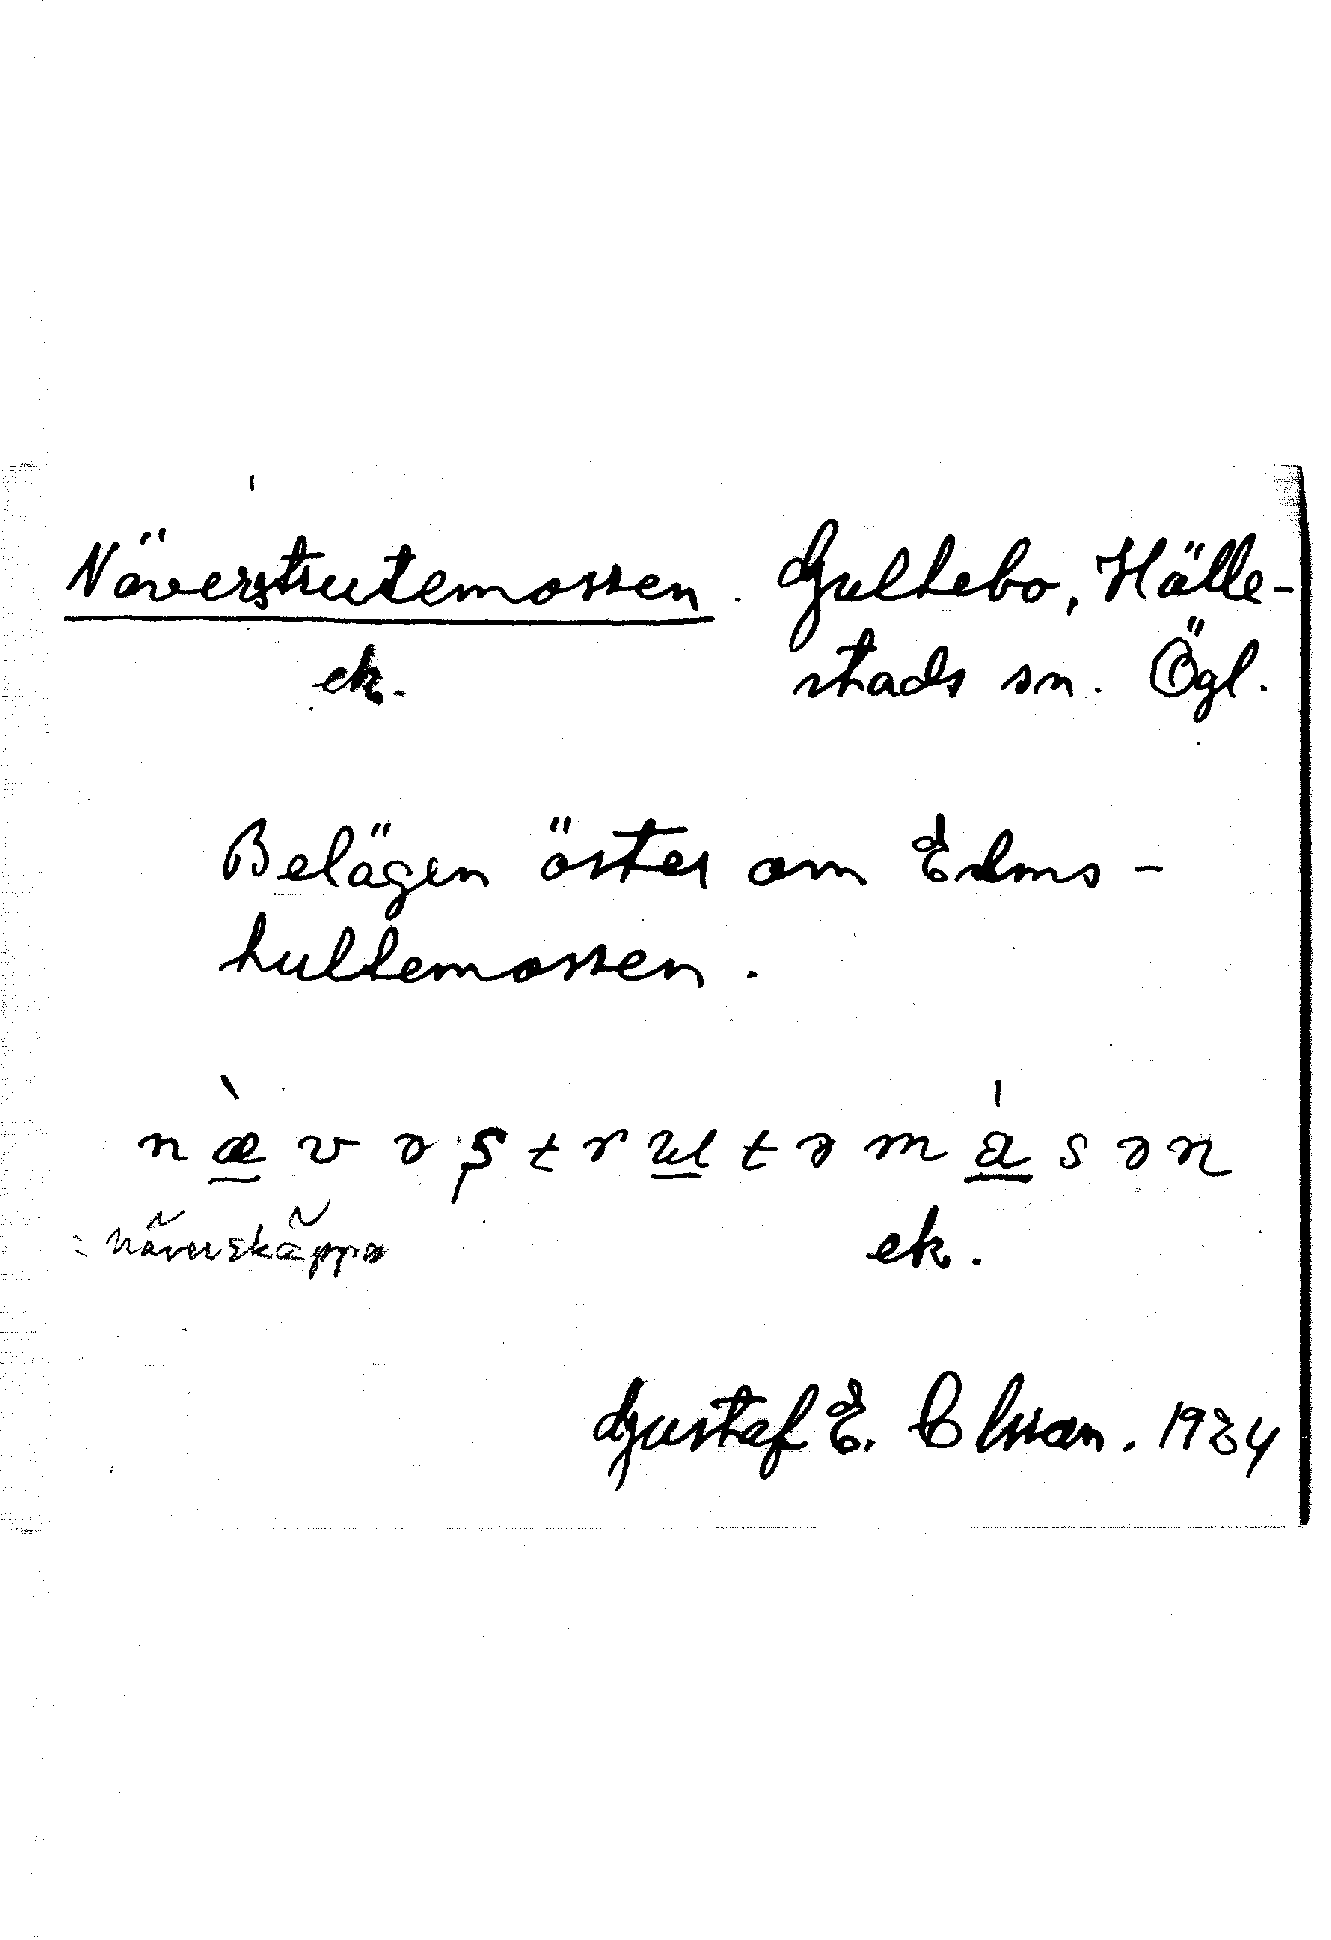 Näverstrutemossen. Gultebo, Hälle-
ek. stads sn. Ögl.
Belägen öster om Edms-
hultemossen.
nævəştrutəmásən
= näverskäppa ek.
Gustaf E. Clsson. 1934